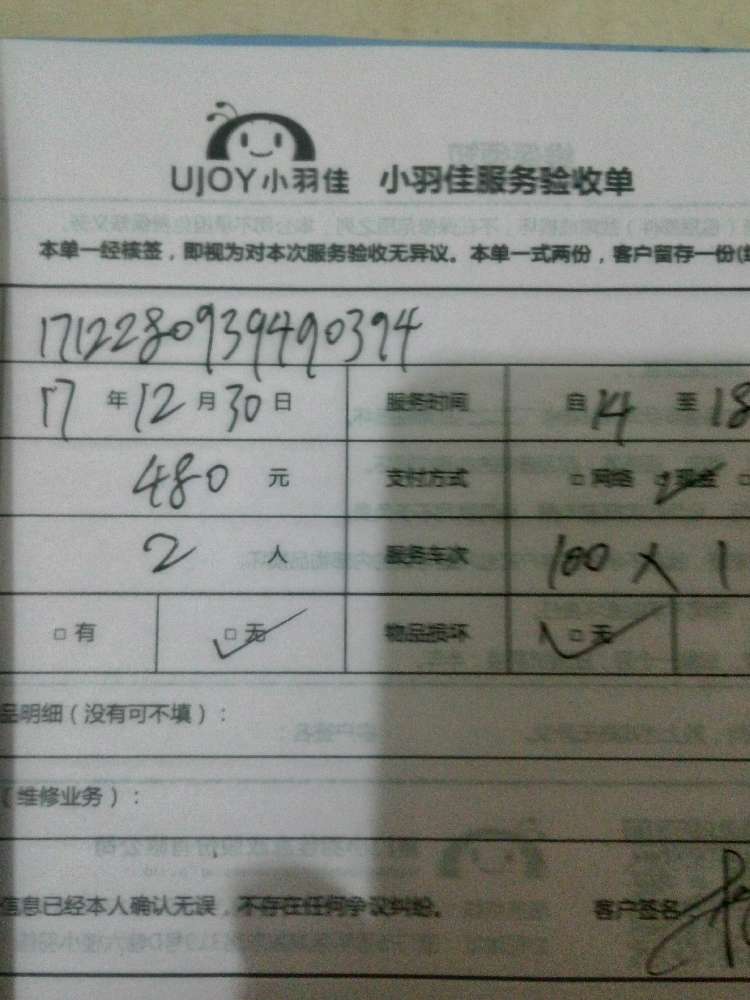 UJOY小羽佳 小羽佳服务验收单
本单一经核签，即视为对本次服务验收无异议。本单一式两份，客户留存一份
171228093949490394
17 年 12 月 30 日 服务时间 自 14 至 18
480 元 支付方式 □ 网络 □ 现金 □
2 人 服务车次 100 × 1
□ 有 □ 无 物品损坏 □ 无
品明细（没有可不填）：
（维修业务）：
信息已经本人确认无误，不存在任何争议纠纷。 客户签名：